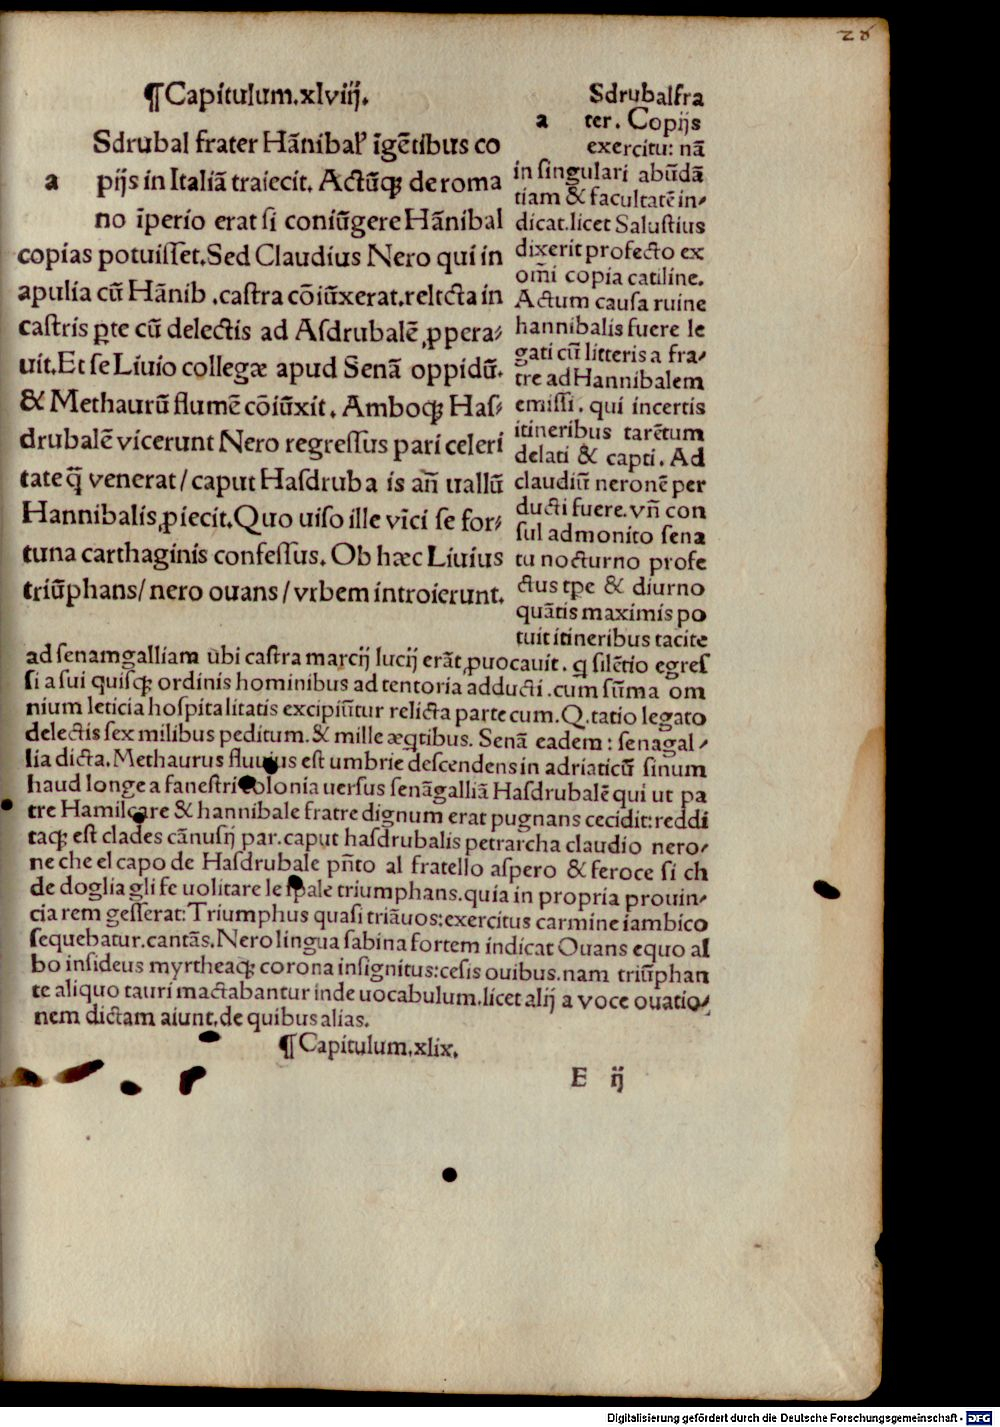 28
¶Capitulum.xlviij.
Sdrubal frater Hānibal' īgētibus co
a pijs in Italiā traiecit. Actūq; de roma
no īperio erat si coniūgere Hānibal
copias potuisset. Sed Claudius Nero qui in
apulia cū Hānib .castra cōiūxerat.relicta in
castris ꝑte cū delectis ad Asdrubalē ꝓpera⸗
uit. Et se Liuio collegæ apud Senā oppidū.
& Methaurū flumē cōiūxit. Amboq; Has⸗
drubalē vicerunt Nero regressus pari celeri
tate q̄ venerat/caput Hasdruba is añ uallū
Hannibalis ꝓiecit. Quo uiso ille vīci se for⸗
tuna carthaginis confessus. Ob hæc Liuius
triūphans/ nero ouans / vrbem introierunt.
Sdrubal fra
a ter. Copijs
exercitu: nā
in singulari abūdā
tiam & facultatē in⸗
dicat.licet Salustius
dixerit profecto ex
om̄i copia catiline.
Actum causa ruine
hannibalis fuere le
gati cū litteris a fra⸗
tre ad Hannibalem
emissi. qui incertis
itineribus tarētum
delati & capti. Ad
claudiū neronē per
ducti fuere. vñ con
sul admonito sena
tu nocturno profe
ctus tpe & diurno
quātis maximis po
tuit itineribus tacite
ad senamgalliam ubi castra marcij lucij erāt ꝓuocauit. q silētio egres
si a sui quisq; ordinis hominibus ad tentoria adducti .cum sūma om
nium leticia hospitalitatis excipiūtur relicta parte cum. Q. tatio legato
delectis sex milibus peditum. & mille æqtibus. Senā eadem : senagal⸗
lia dicta. Methaurus fluuius est umbrie descendens in adriaticū sinum
haud longe a fanestri colonia uersus senāgalliā Hasdrubalē qui ut pa
tre Hamilcare & hannibale fratre dignum erat pugnans cecidit: reddi
taq; est clades cānusij par.caput hasdrubalis petrarcha claudio nero⸗
ne che el capo de Hasdrubale pñto al fratello aspero & feroce si ch
de doglia gli fe uolitare le spale triumphans.quia in propria prouin⸗
cia rem gesserat: Triumphus quasi triāuos: exercitus carmine iambico
sequebatur.cantās. Nero lingua sabina fortem indicat Ouans equo al
bo insideus myrtheaq; corona insignitus: cesis ouibus.nam triūphan
te aliquo tauri mactabantur inde uocabulum.licet alij a voce ouatio⸗
nem dictam aiunt.de quibus alias.
¶Capitulum.xlix.
E ij
Digitalisierung gefördert durch die Deutsche Forschungsgemeinschaft - DFG